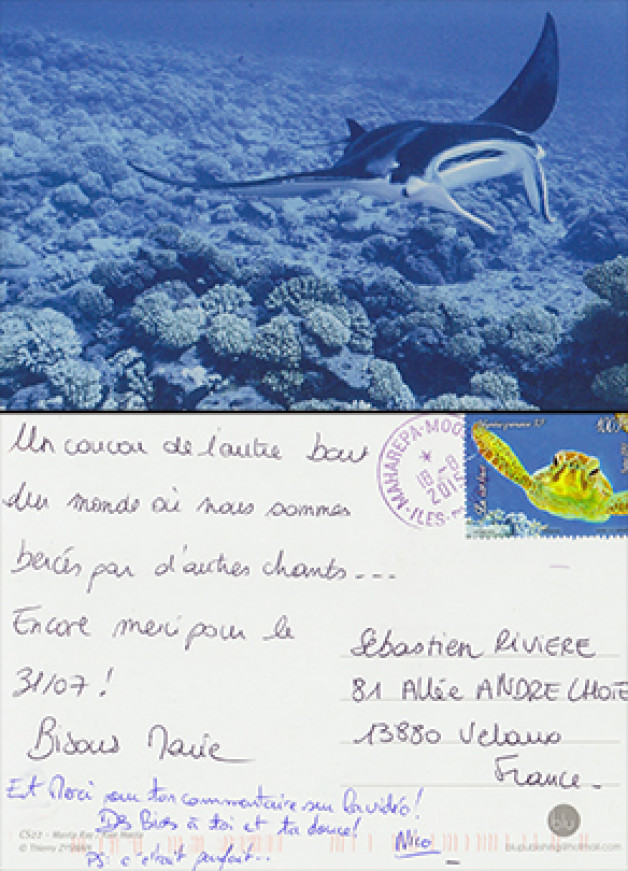 Un coucou de l'autre bout
du monde où nous sommes
bercés par d'autres chants...
Encore merci pour le
31/07 !
Bisous Marie
Et Merci pour ton commentaire sur la vidéo!
Des Bises à toi et ta douce!
Nico
PS: c'était parfait...
MAHAREPA-MOO
18-8
2015
ILES
100
Sébastien RIVIERE
81 Allée ANDRE CHOTE
13880 Velaux
France.
CS22 - Manta Ray / Raie Manta
© Thierry
blu
blupublishing@hotmail.com